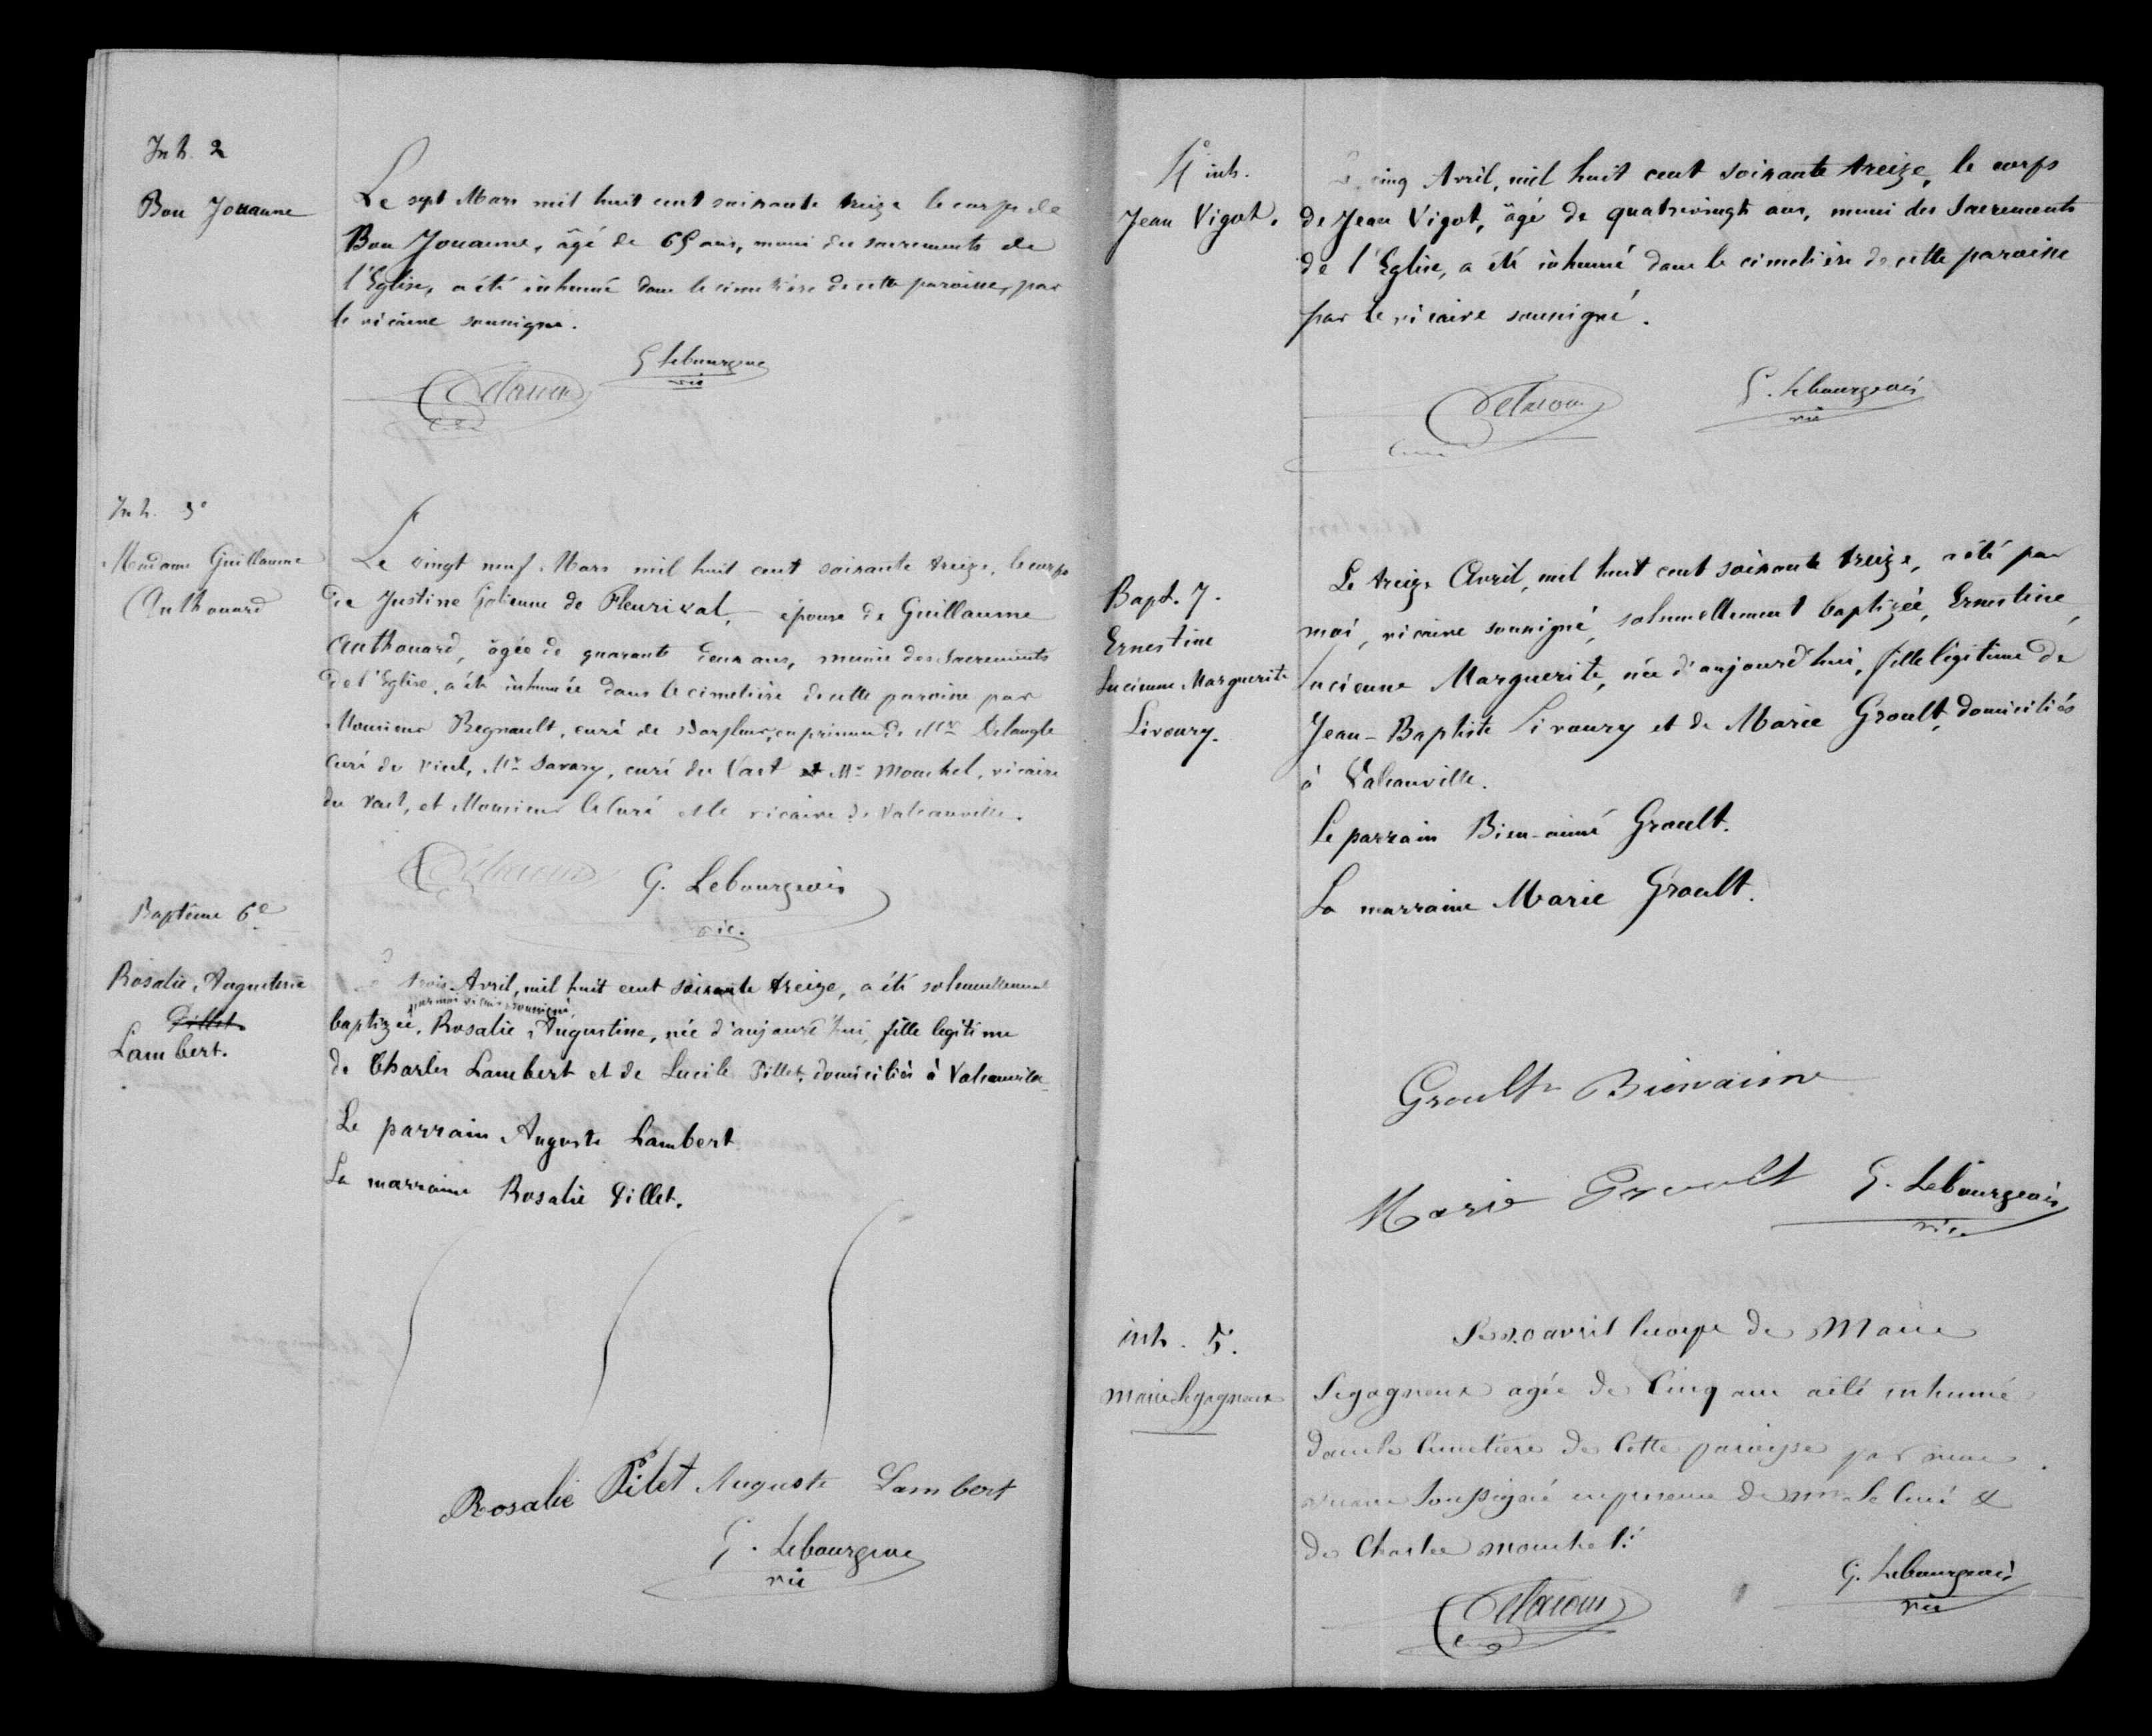 Inh. 2
Bon Jouanne
Le sept Mars mil huit cent soixante treize le corps de
Bon Jouanne, âgé de 65 ans, muni des sacrements de
l'Eglise, a été inhumé dans le cimetière de cette paroisse, par
le vicaire soussigné.
G Lebourgeois
vic
Inh. 3e
Madame Guillaume
Anthouard
Le vingt neuf Mars mil huit cent soixante treize, le corps
de Justine de Fleurival, épouse de Guillaume
Anthouard, âgée de quarante deux ans, munie des Sacrements
de l'Eglise, a été inhumée dans le cimetière de cette paroisse par
Monsieur Regnault, curé de Barfleur, en présence de Mr Delangle
curé de Vicel, Mr Savary, curé du Vast et Mr Mouchel, vicaire
du Vast, et Monsieur le Curé et le vicaire de Valcanville.
G. Lebourgeois
vic.
Baptême 6e
Rosalie, Augustine
Pillet
Lambert.
trois Avril, mil huit cent soixante treize, a été solennellement
par moi vicaire soussigné,
baptizée, Rosalie, Augustine, née d'aujourd'hui, fille legitime
de Charles Lambert et de Lucile Pillet, domiciliés à Valcanville
Le parrain Auguste Lambert
La marraine Rosalie Pillet.
Rosalie Pilet Auguste Lambert
G. Lebourgeois
vic
4e inh.
Jean Vigot.
Le cinq Avril, mil huit cent soixante treize, le corps
de Jean Vigot, âgé de quatrevingts ans, muni des Sacrements
de l'Eglise, a été inhumé dans le cimetière de cette paroisse
par le vicaire soussigné.
G. Lebourgeois
vic
Bapt. 7.
Ernestine
Lucienne Marguerite
Livoury.
Le treize Avril, mil huit cent soixante treize, a été par
moi, vicaire soussigné, solennellement baptizée, Ernestine,
Lucienne Marguerite, née d'aujourd'hui, fille légitime de
Jean-Baptiste Livoury et de Marie Groult, domiciliés
à Valcanville.
Le parrain Bien-aimé Groult.
La marraine Marie Groult.
Groult Bienaime
Marie Groult G. Lebourgeois
vic
inh. 5.
Marie Legagneux
avril le corps de Marie
Legagneux agée de Cinq ans a été inhumé
dans le Cimetière de Cette paroisse par nous
vicaire Soussigné en présence de mr Le Curé &
de Charles mouchel.
G. Lebourgeois
vic